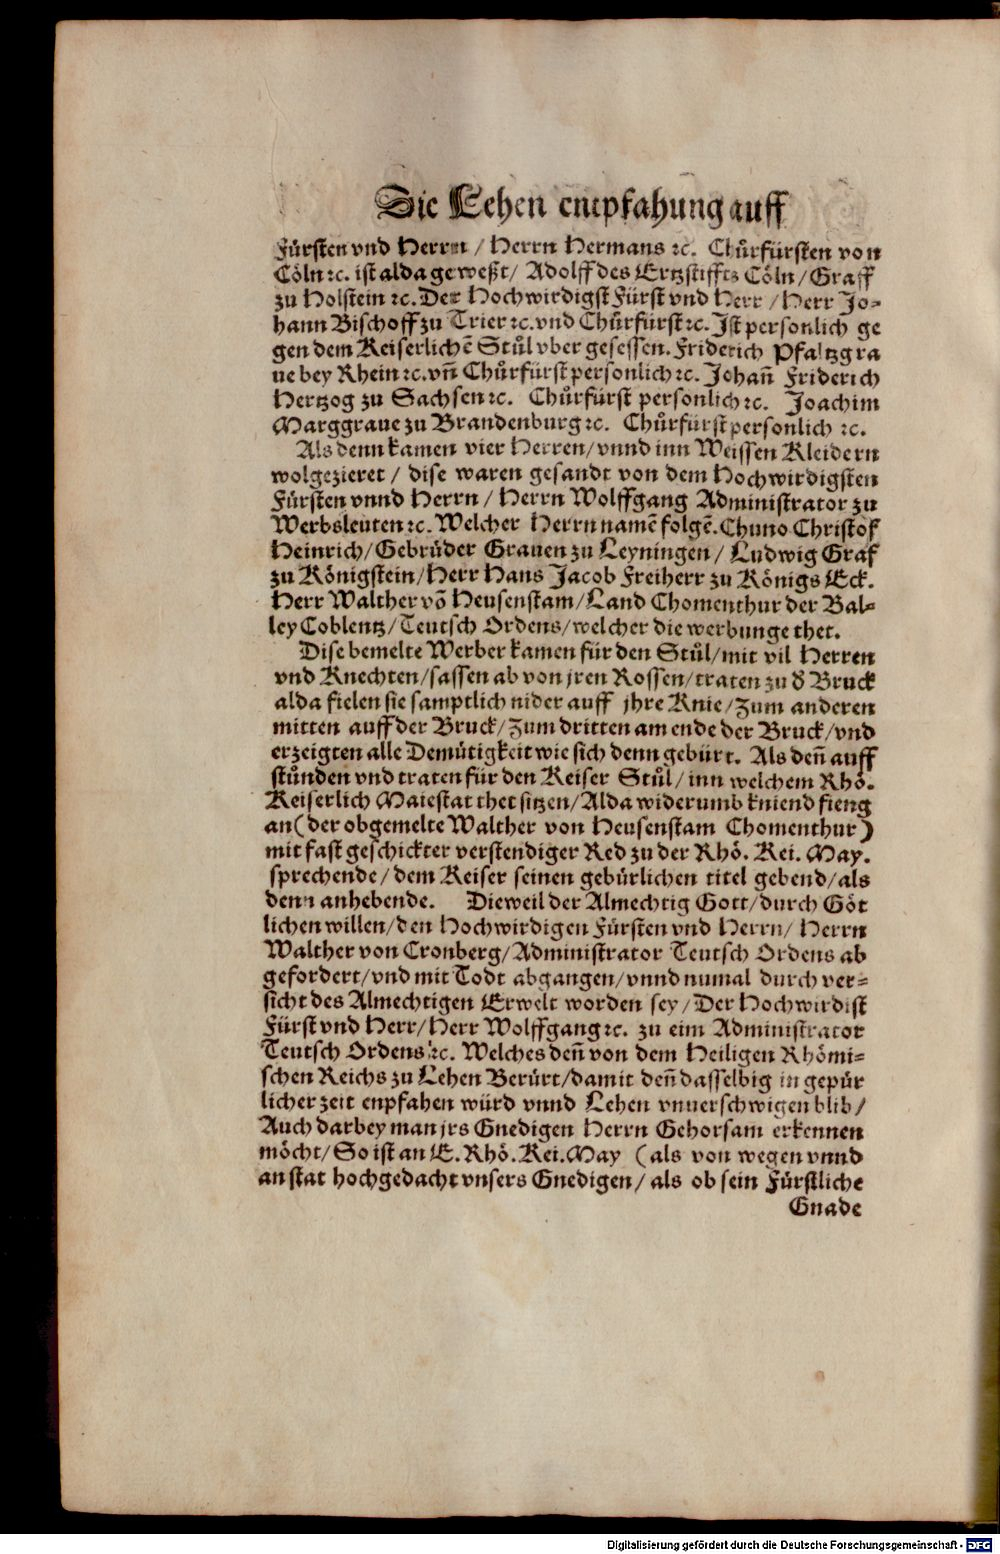 Die Lehen empfahung auff
Fürsten vnd Herrn / Herrn Hermans ꝛc. Chůrfürsten von
Cöln ꝛc. ist alda geweßt / Adolff des Ertzstiffts Cöln / Graff
zu Holstein ꝛc. Der Hochwirdigst Fürst vnd Herr / Herr Jo⸗
hann Bischoff zu Trier ꝛc. vnd Chůrfürst ꝛc. Ist personlich ge
gen dem Keiserlichē Stůl vber gesessen. Friderich Pfaltzgra
ue bey Rhein ꝛc. vñ Chůrfürst personlich ꝛc. Johañ Friderich
Hertzog zu Sachsen ꝛc. Chůrfürst personlich ꝛc. Joachim
Marggraue zu Brandenburg ꝛc. Chůrfürst personlich ꝛc.
Als denn kamen vier Herren / vnnd inn Weissen Kleidern
wolgezieret / dise waren gesandt von dem Hochwirdigsten
Fürsten vnnd Herrn / Herrn Wolffgang Administrator zu
Werbsleuten ꝛc. Welcher Herrn namē folgē. Chuno Christof
Heinrich / Gebrüder Grauen zu Leyningen / Ludwig Graf
zu Königstein / Herr Hans Jacob Freiherr zu Königs Eck.
Herr Walther vō Heusenstam / Land Chomenthur der Bal⸗
ley Coblentz / Teutsch Ordens / welcher die werbunge thet.
Dise bemelte Werber kamen für den Stůl / mit vil Herren
vnd Knechten / sassen ab von jren Rossen / traten zu d̕ Bruck
alda fielen sie samptlich nider auff jhre Knie / Zum anderen
mitten auff der Bruck / Zum dritten am ende der Bruck / vnd
erzeigten alle Demütigkeit wie sich denn gebürt. Als deñ auff
stůnden vnd traten für den Keiser Stůl / inn welchem Rhö.
Keiserlich Maiestat thet sitzen / Alda widerumb kniend fieng
an (der obgemelte Walther von Heusenstam Chomenthur)
mit fast geschickter verstendiger Red zu der Rhö. Kei. May.
sprechende / dem Keiser seinen gebürlichen titel gebend / als
denn anhebende. Dieweil der Almechtig Gott / durch Göt
lichen willen / den Hochwirdigen Fürsten vnd Herrn / Herrn
Walther von Cronberg / Administrator Teutsch Ordens ab
gefordert / vnd mit Todt abgangen / vnnd numal durch ver⸗
sicht des Almechtigen Erwelt worden sey / Der Hochwirdist
Fürst vnd Herr / Herr Wolffgang ꝛc. zu eim Administrator
Teutsch Ordens ꝛc. Welches deñ von dem Heiligen Rhömi⸗
schen Reichs zu Lehen Berürt / damit deñ dasselbig in gepür
licher zeit enpfahen würd vnnd Lehen vnuerschwigen blib /
Auch darbey man jrs Gnedigen Herrn Gehorsam erkennen
möcht / So ist an E. Rhö. Kei. May (als von wegen vnnd
an stat hochgedacht vnsers Gnedigen / als ob sein Fürstliche
Gnade
Digitalisierung gefördert durch die Deutsche Forschungsgemeinschaft - DFG